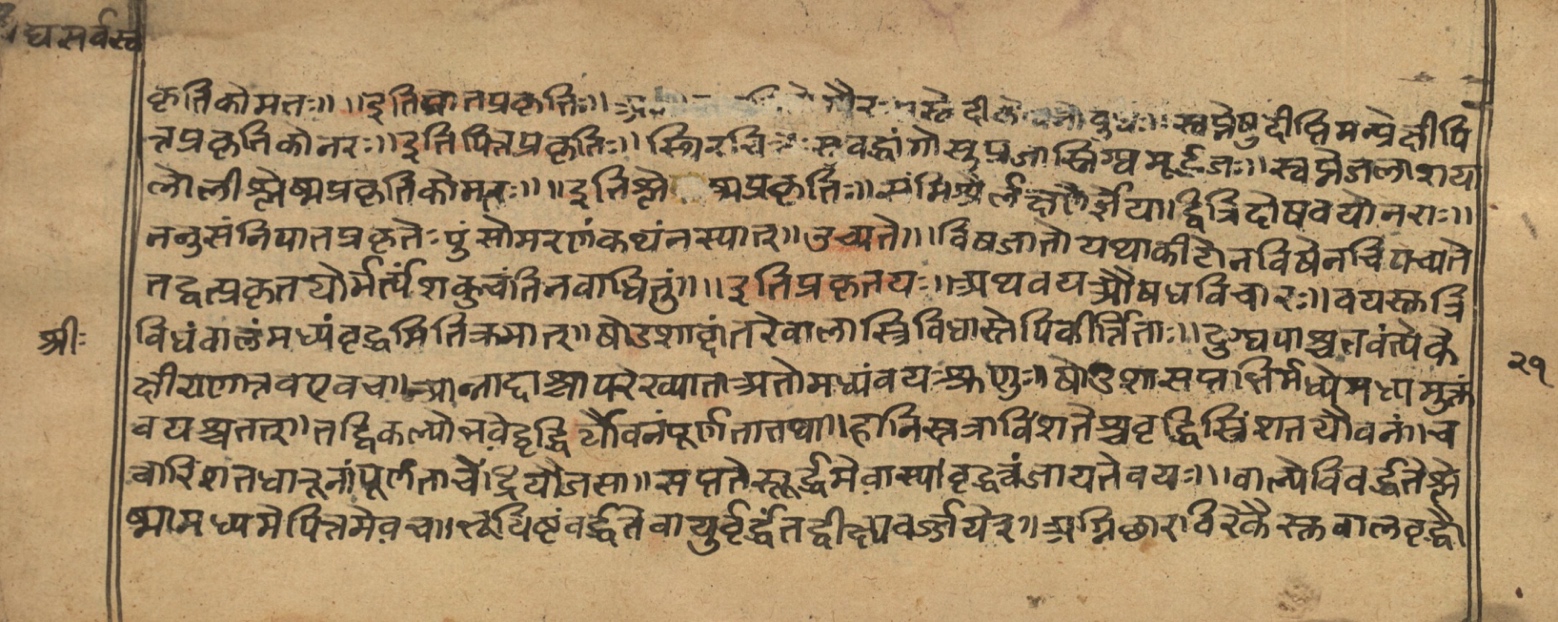 घसर्वस्व
कृतिकोमतः॥ ॥इतिवातप्रकृतिः॥ स्वप्नेषुदीप्तिमत्प्रेक्षीपि
त्तप्रकृतिकोनरः॥इतिपित्तप्रकृतिः॥स्थिरचित्तःसुवद्धांगोसुप्रजास्निग्धमूर्द्धजः॥स्वप्नेजलाशया
लोलीश्लेष्मप्रकृतिकोमतः॥॥इतिश्ले ष्मप्रकृतिः॥संमिश्रैर्लक्षणैर्ज्ञेया।द्वित्रिदोषवयोनराः॥
ननुसंनिपातप्रकृतेःपुंसोमरणंकथंनस्यात्॥उच्यते॥॥विषजातोयथाकीटोनविषेनविपच्यते
तद्वत्प्रकृतयोर्मर्त्यंशक्नुवंतिनवाधितुं॥॥इतिप्रकृतयः॥अथवयऔषधविचारः॥वयस्तत्रि
श्रीः
विधंवालंमध्यंवृद्धमितिक्रमात्॥षोडशाव्दांतरेवालास्त्रिविधास्तेपिकीर्त्तिताः॥दुग्धपाश्चभवंत्येके
२१
क्षीराणान्नवएवच।आन्नादाश्चापरेख्याताअतोमध्यंवयःशृणुः॥षोडशासप्ततिर्मध्येमध्यमुक्तं
वयश्चतत्॥तद्विकल्पोभवेद्वृद्धिर्यौवनंपूर्णतातथा॥हानिस्तत्राविंशतेश्चवृद्धिस्त्रिंशतयौवनं।च
त्वारिंशतधातूनांपूर्णताचेंद्रियौजसा॥सप्ततेस्तूर्द्धमेवास्या।वृद्धत्वंजायतेवयः॥॥वाल्येविवर्द्धतेश्ले
ष्मामध्यमेपित्तमेवच।भूयिष्टंवर्द्धतेवायुर्वृर्द्धेतद्वीक्ष्यवर्ज्जयेत्॥अग्निछारविरेकैस्तवालवृद्धौ